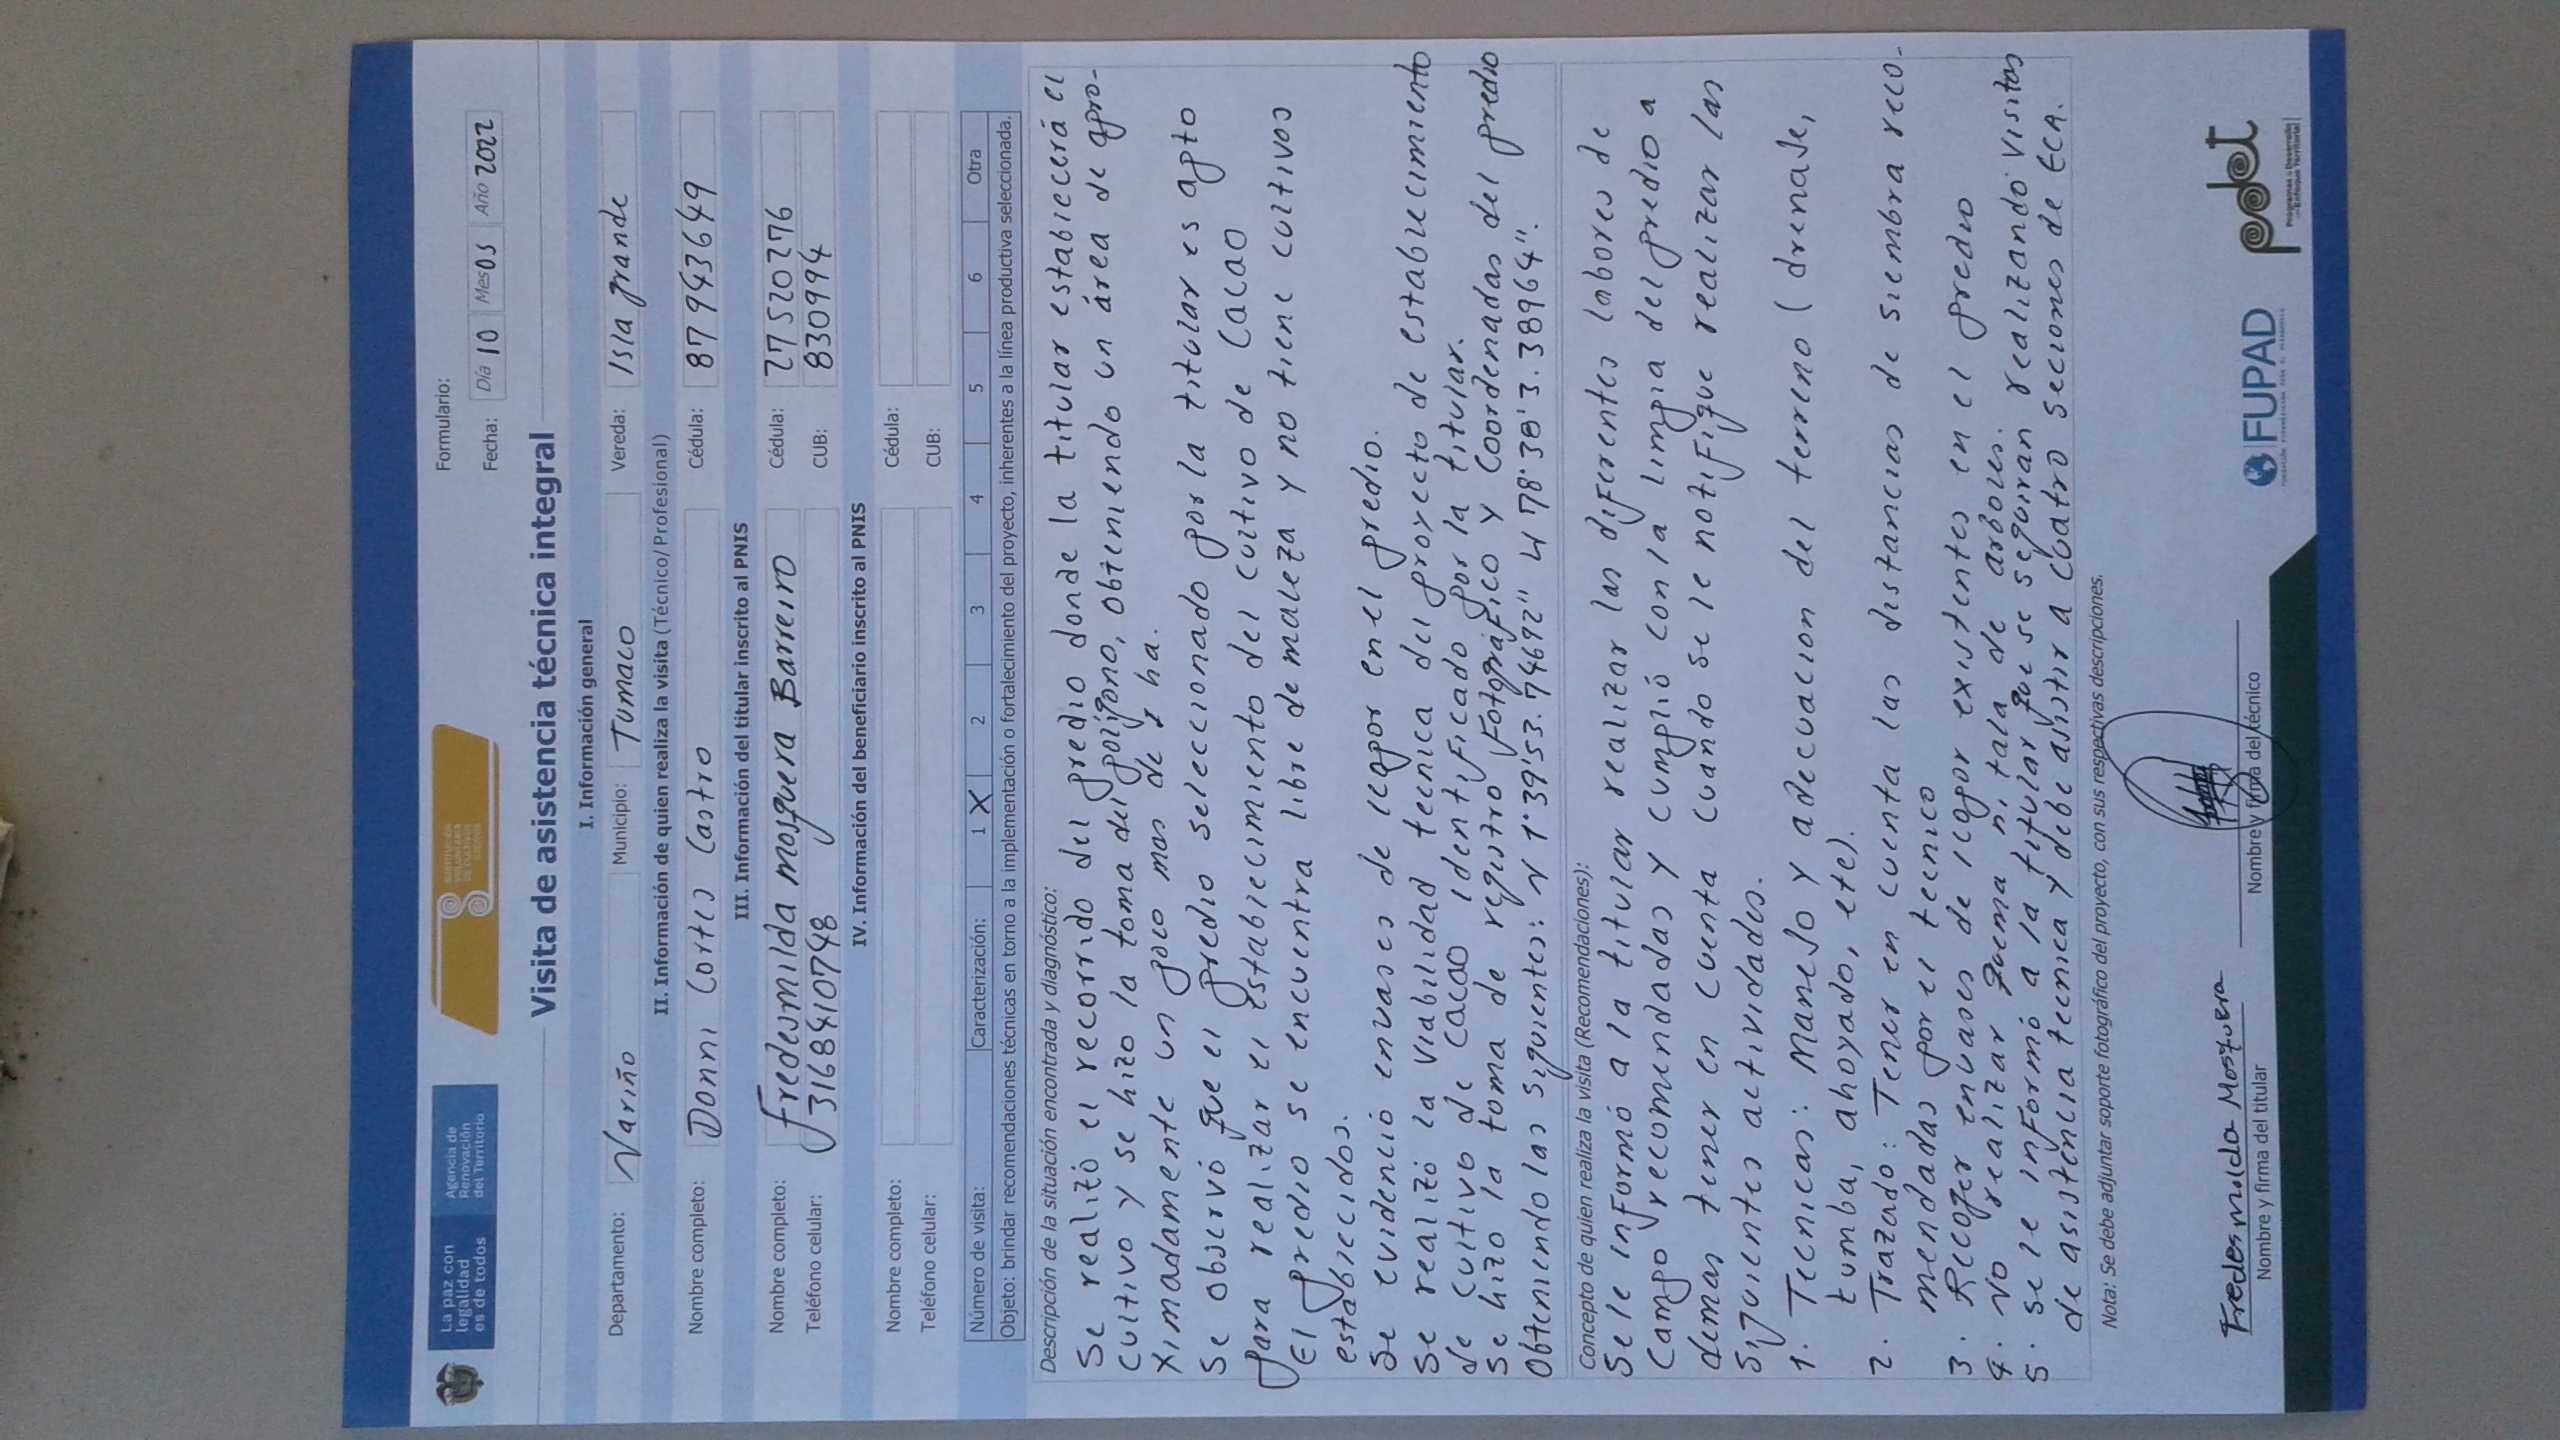 La paz con
legalidad
es de todos
Agencia de
Renovación
del Territorio
SUSTITUCIÓN
VOLUNTARIA
DE CULTIVOS
ILÍCITOS
Formulario:
Fecha: Día 10 Mes 05 Año 2022
Visita de asistencia técnica integral
I. Información general
Departamento: Nariño Municipio: Tumaco Vereda: Isla grande
II. Información de quien realiza la visita (Técnico/ Profesional)
Nombre completo: Donni Cortes Castro Cédula: 87943649
III. Información del titular inscrito al PNIS
Nombre completo: Fredesmilda mosquera Barreiro Cédula: 27520276
Teléfono celular: 3168410748 CUB: 830994
IV. Información del beneficiario inscrito al PNIS
Nombre completo: Cédula:
Teléfono celular: CUB:
Número de visita: Caracterización: 1 X 2 3 4 5 6 Otra
Objeto: brindar recomendaciones técnicas en torno a la implementación o fortalecimiento del proyecto, inherentes a la línea productiva seleccionada.
Descripción de la situación encontrada y diagnóstico:
Se realizó el recorrido del predio donde la titular establecerá el
cultivo y se hizo la toma del polígono, obteniendo un área de apro-
ximadamente un poco mas de 1 ha.
Se observó que el predio seleccionado por la titular es apto
para realizar el establecimiento del cultivo de cacao
El predio se encuentra libre de maleza y no tiene cultivos
establecidos.
Se evidenció envases de licor en el predio.
Se realizó la viabilidad tecnica del proyecto de establecimiento
de cultivo de cacao identificado por la titular.
Se hizo la toma de registro fotográfico y coordenadas del predio
obteniendo las siguientes: N 1°39'53.74692" W 78°38'3.38964".
Concepto de quien realiza la visita (Recomendaciones):
Se le informó a la titular realizar las diferentes labores de
campo recomendadas y cumplió con la limpia del predio a
demas tener en cuenta cuando se le notifique realizar las
siguientes actividades.
1. Tecnicas: Manejo y adecuacion del terreno (drenaje,
tumba, ahoyado, etc).
2. Trazado: Tener en cuenta las distancias de siembra reco-
mendadas por el tecnico
3. Recoger envases de licor existentes en el predio
4. No realizar quema ni tala de arboles.
5. se le informó a la titular que se seguiran realizando visitas
de asistencia tecnica y debe asistir a cuatro secciones de ECA.
Nota: Se debe adjuntar soporte fotográfico del proyecto, con sus respectivas descripciones.
Fredesmilda Mosquera
Nombre y firma del titular
Nombre y firma del técnico
FUPAD
pdet
Programas de Desarrollo
con Enfoque Territorial